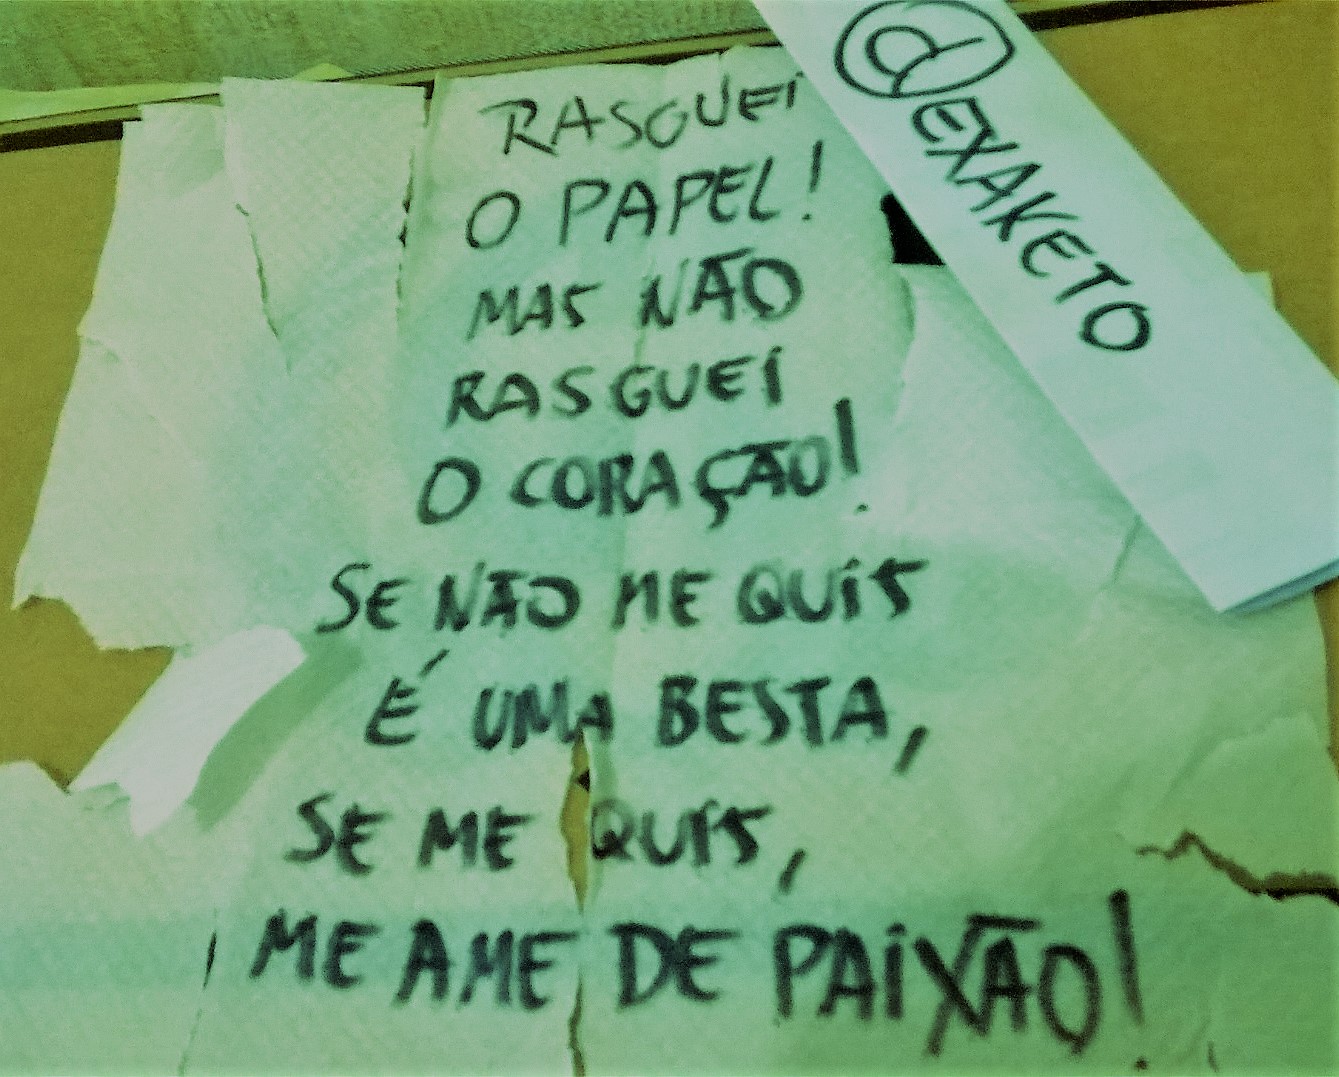 RASGUEI
O PAPEL!
MAS NÃO
RASGUEI
O CORAÇÃO!
SE NÃO ME QUIS
É UMA BESTA,
SE ME QUIS,
ME AME DE PAIXÃO!
@DEXAKETO